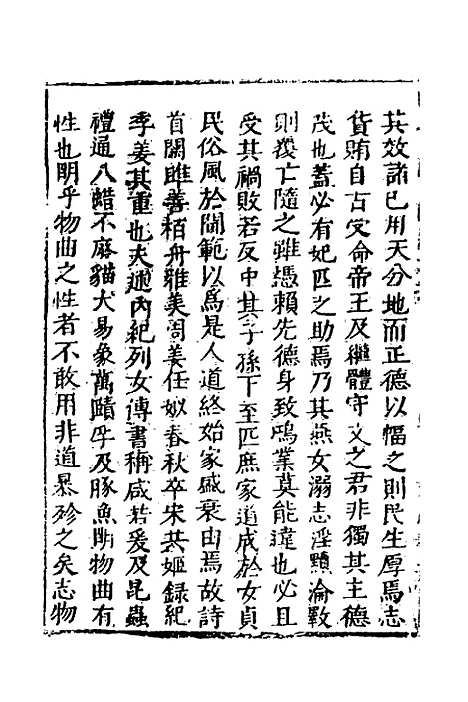 其效諸已用天分地而正德以幅之則民生厚焉志
貨賄自古受命帝王及繼體守文之君非獨其主德
茂也蓋必有妃匹之助焉乃其燕女溺志淫顯淪斁
則覆亡隨之雖憑賴先德身致鴻業莫能違也必且
受其禍敗若反中其子孫下至匹庶家道成於女貞
民俗風於閫範以為是人道終始家戚衰由焉故詩
首關雎善栢舟雅美周姜任姒春秋卒宋共姬錄紀
季姜其重也夫遞內紀列女傳書稱咸若爰及昆蟲
禮通八蜡不麻貓犬易象萬賾孚及豚魚明物曲有
性也明乎物曲之性者不敢用非道暴殄之矣志物